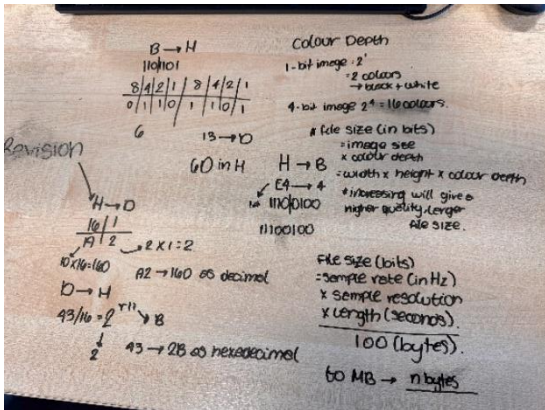 B → H
110/101
8 4 2 1 8 4 2 1
0 1 1 0 1 1 0 1
6
13 → D
6D in H
Revision
H → D
16 1
A 2
→ 2 x 1 = 2
10x16=160
A2 → 160 as decimal
D → H
43/16 = 2 r11 → B
2
43 → 2B as hexadecimal
H → B
E4 → 4
1110/0100
11100100
Colour Depth
1-bit image: 2¹
= 2 colours
→ black + white
4-bit image 2⁴ = 16 colours.
* file size (in bits)
= image size
x colour depth
= width x height x colour depth
* increasing will give a
higher quality, larger
file size.
File size (bits)
= sample rate (in Hz)
x sample resolution
x length (seconds).
100 (bytes).
to MB → n bytes